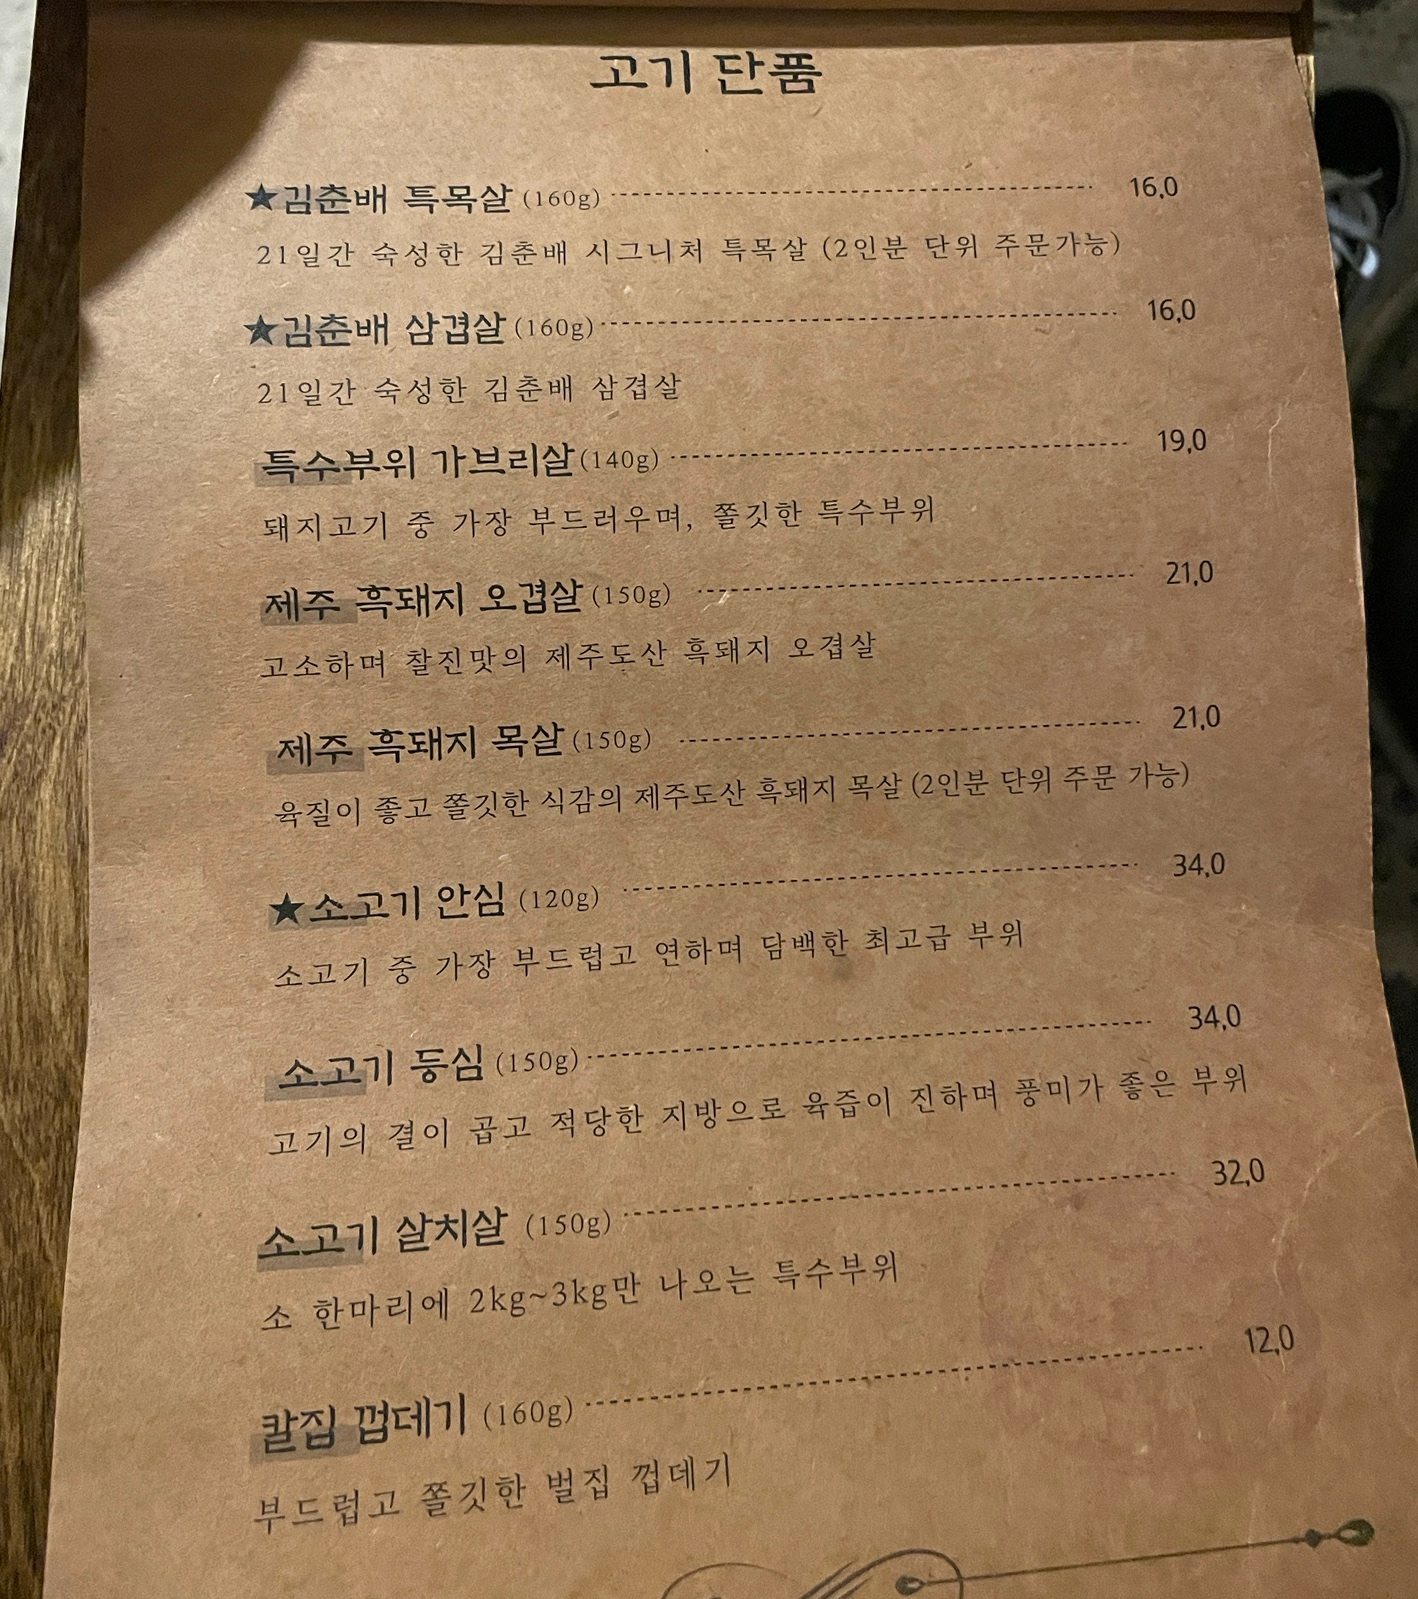 고기 단품
★김춘배 특목살 (160g) 16,0
21일간 숙성한 김춘배 시그니처 특목살 (2인분 단위 주문가능)
★김춘배 삼겹살 (160g) 16,0
21일간 숙성한 김춘배 삼겹살
특수부위 가브리살 (140g) 19,0
돼지고기 중 가장 부드러우며, 쫄깃한 특수부위
제주 흑돼지 오겹살 (150g) 21,0
고소하며 찰진맛의 제주도산 흑돼지 오겹살
제주 흑돼지 목살 (150g) 21,0
육질이 좋고 쫄깃한 식감의 제주도산 흑돼지 목살 (2인분 단위 주문 가능)
★소고기 안심 (120g) 34,0
소고기 중 가장 부드럽고 연하며 담백한 최고급 부위
소고기 등심 (150g) 34,0
고기의 결이 곱고 적당한 지방으로 육즙이 진하며 풍미가 좋은 부위
소고기 살치살 (150g) 32,0
소 한마리에 2kg~3kg만 나오는 특수부위
칼집 껍데기 (160g) 12,0
부드럽고 쫄깃한 벌집 껍데기